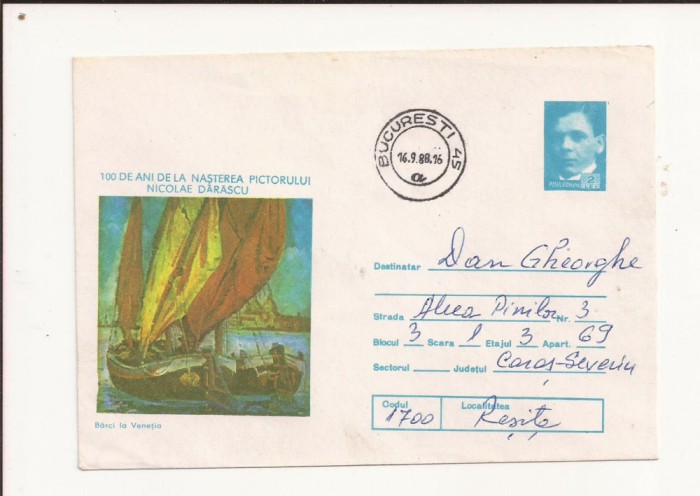 BUCURESTI 45
16.9.88.16
a
100 DE ANI DE LA NAȘTEREA PICTORULUI
NICOLAE DĂRĂSCU
POSTA ROMANA 2
Destinatar Dan Gheorghe
Strada Aleea Pinilor Nr. 3
Blocul 3 Scara 1 Etajul 3 Apart. 69
Sectorul Județul Caraș-Severin
Codul Localitatea
1700 Reșița
Bărci la Veneția